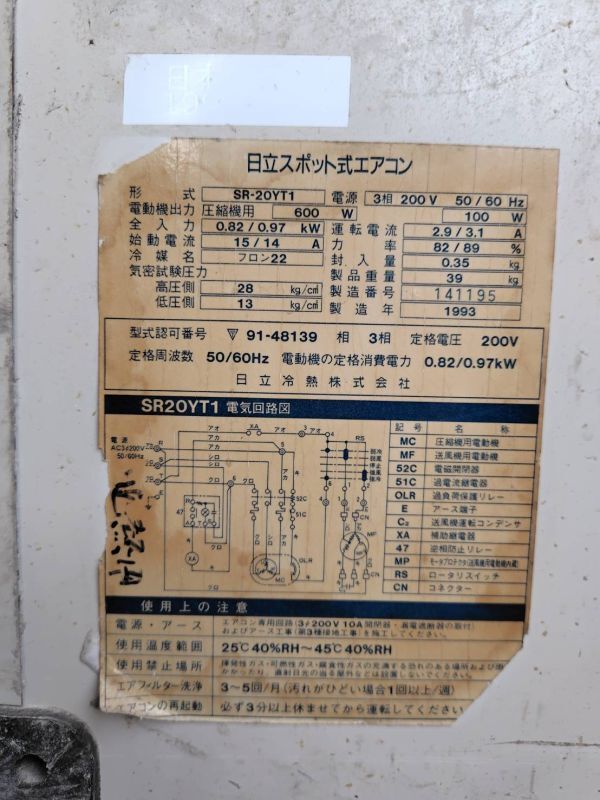 日立スポット式エアコン
形式 SR-20YT1 電源 3相 200V 50/60 Hz
電動機出力 圧縮機用 600 W 100 W
全入力 0.82/0.97 kW 運転電流 2.9/3.1 A
始動電流 15/14 A 力率 82/89 %
冷媒名 フロン22 封入量 0.35 kg
気密試験圧力 製品重量 39 kg
高圧側 28 kg/cm² 製造番号 141195
低圧側 13 kg/cm² 製造年 1993
型式認可番号 91-48139 相 3相 定格電圧 200V
定格周波数 50/60Hz 電動機の定格消費電力 0.82/0.97kW
日立冷熱株式会社
SR20YT1 電気回路図
記号 名称
MC 圧縮機用電動機
MF 送風機用電動機
52C 電磁開閉器
51C 過電流継電器
OLR 過負荷保護リレー
E アース端子
C₂ 送風機運転コンデンサ
XA 補助継電器
47 逆相防止リレー
MP モータプロテクタ(送風機用電動機内蔵)
RS ロータリスイッチ
CN コネクター
電源
AC3∮200V
50/60Hz
アオ XA アオ RS
アカ
シロ
クロ
52C
51C
OLR
MC
MP
CN
47
XA
使用上の注意
電源・アース エアコン専用回路(3∮200V 10A開閉器・漏電遮断器の取付)
およびアース工事(第3種接地工事)を施工してください。
使用温度範囲 25℃40%RH~45℃40%RH
使用禁止場所 揮発性ガス・可燃性ガス・腐食性ガスの充満する恐れのある場所および雨の
かかったり、直射日光の当る屋外などには設置しないでください。
エアフィルター洗浄 3~5回/月(汚れがひどい場合1回以上/週)
エアコンの再起動 必ず3分以上休ませてから運転してください